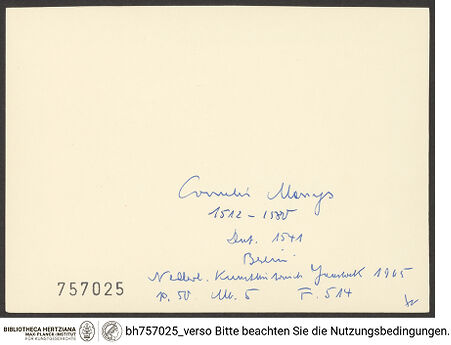 Cornelis Massys
1512 – 1580
Dat. 1541
Berlin
Nederl. Kunsthistorisch Jaarboek 1965
p. 50 Ab. 5 F. 514
757025
BIBLIOTHECA HERTZIANA
MAX-PLANCK-INSTITUT
FÜR KUNSTGESCHICHTE
bh757025_verso Bitte beachten Sie die Nutzungsbedingungen.